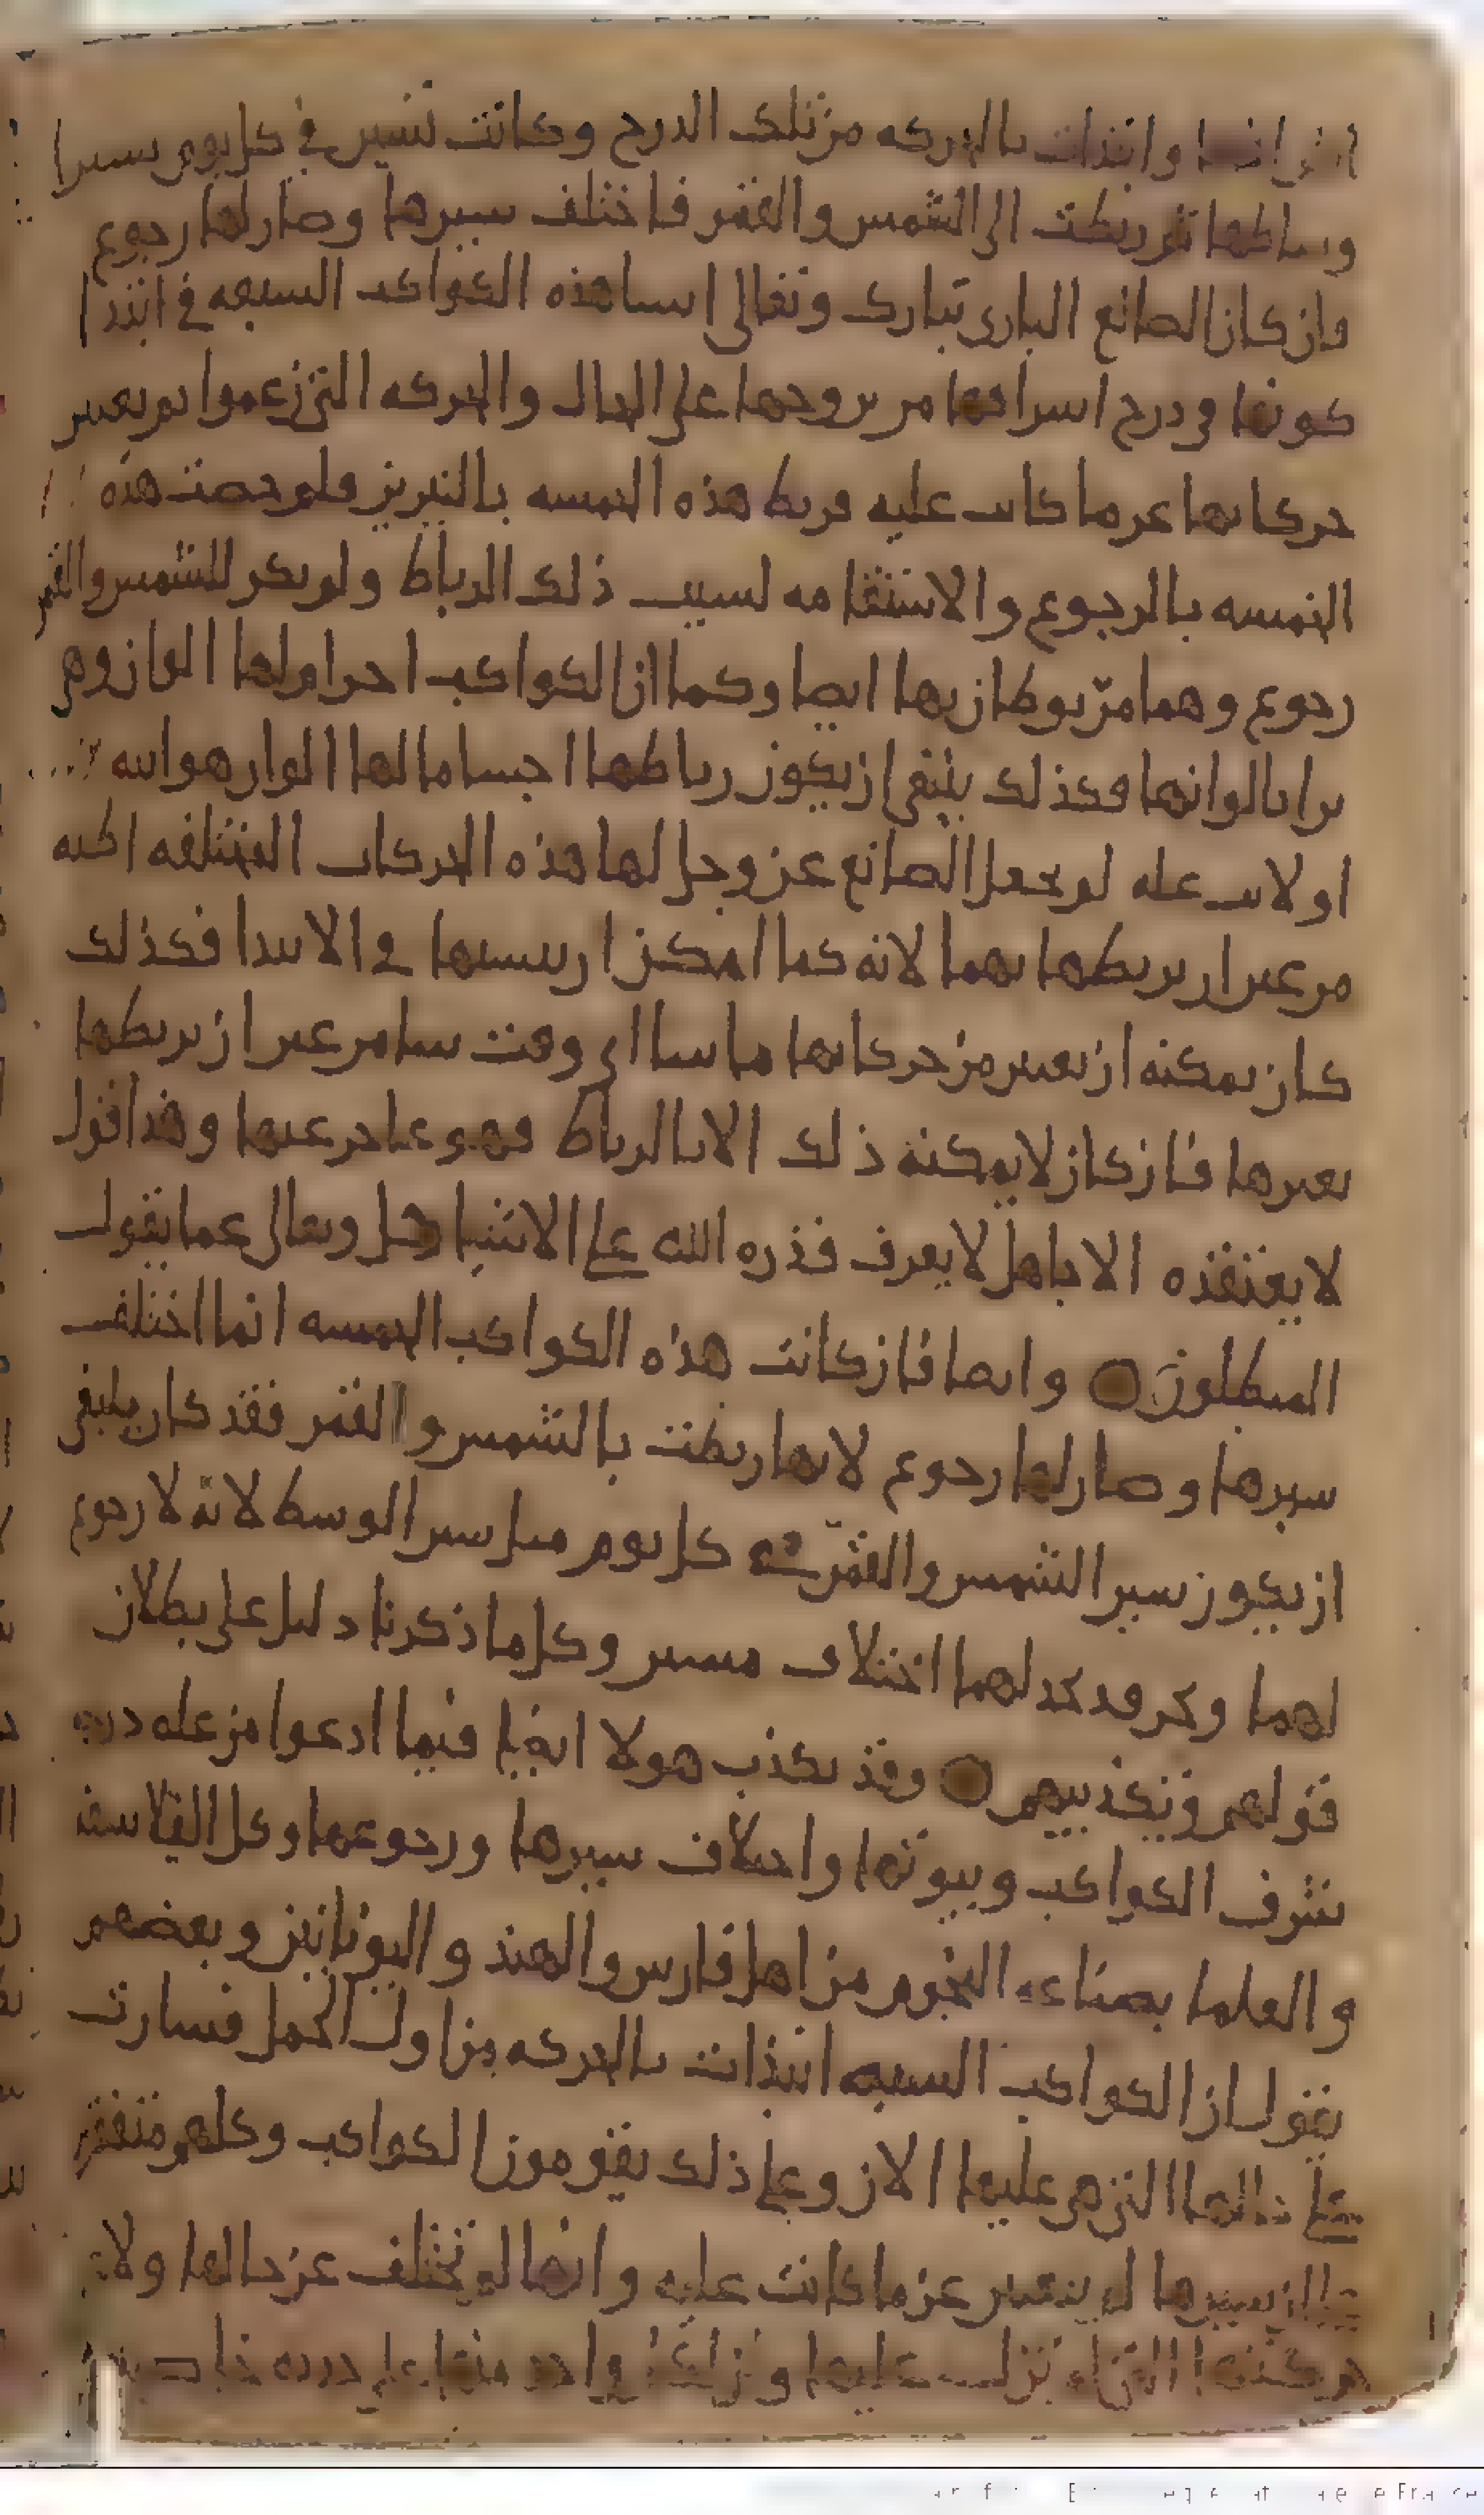 اشرافها وابتدات بالحركه من تلك الدرج وكانت تسير في كل يوم سيرا
وساطها ثم ربطت الى الشمس والقمر فاختلف سيرها وصار لها رجوع
فان كان الصانع البارى تبارك وتعالى انسا هذه الكواكب السبعه في ابتدا
كونها في درج اشرافها من بروجها على الحال والحركه التى زعموا ثم تغير
حركاتها عن ما كانت عليه فربط هذه الخمسه بالنيرين فلم خصت هذه
الخمسه بالرجوع والاستقامه لسبب ذلك الرباط ولم يكن للشمس والقمر
رجوع وهما مربوطان بها ايضا وكما ان الكواكب اجرام لها الوان وهى
ترا بالوانها فكذلك ينبغى ان يكون رباطها اجساما لها الوان هوائيه
او لاى عله لم يجعل الصانع عز وجل لها هذه الحركات المختلفه
من غير ان يربطها بهما لانه كما امكن ان ينسيها في الابتدا فكذلك
كان يمكنه ان يغير من حركاتها ما شا اى وقت شا من غير ان يربطها
بغيرها فان كان لا يمكنه ذلك الا بالرباط فهو عاجز عنها وهذا قول
لا يعتقده الا جاهل لا يعرف قدره الله على الاشيا جل وتعالى عما يقول
المبطلون ○ وايضا فان كانت هذه الكواكب الخمسه انما اختلف
سيرها وصار لها رجوع لانها ربطت بالشمس والقمر فقد كان ينبغى
ان يكون سير الشمس والقمر في كل يوم مثل سير الوسط لانه لا رجوع
لهما ونحن قد نجد لهما اختلاف مسير وكل ما ذكرنا دليل على بطلان
قولهم وتكذيبهم ○ وقد يكذب هولا ايضا فيما ادعوا من عله درج
شرف الكواكب وبيوتها واختلاف سيرها ورجوعها وكل الفلاسفه
والعلما بصناعه النجوم من اهل فارس والهند واليونانيين وبعضهم
يقول ان الكواكب السبعه ابتدات بالحركه من اول الحمل فسارت
على حالها التى هى عليها الان وعلى ذلك يقومون الكواكب وكلهم متفقين
على ان سيرها لم يتغير عن ما كانت عليه وانها لم تختلف عن حالها ولا